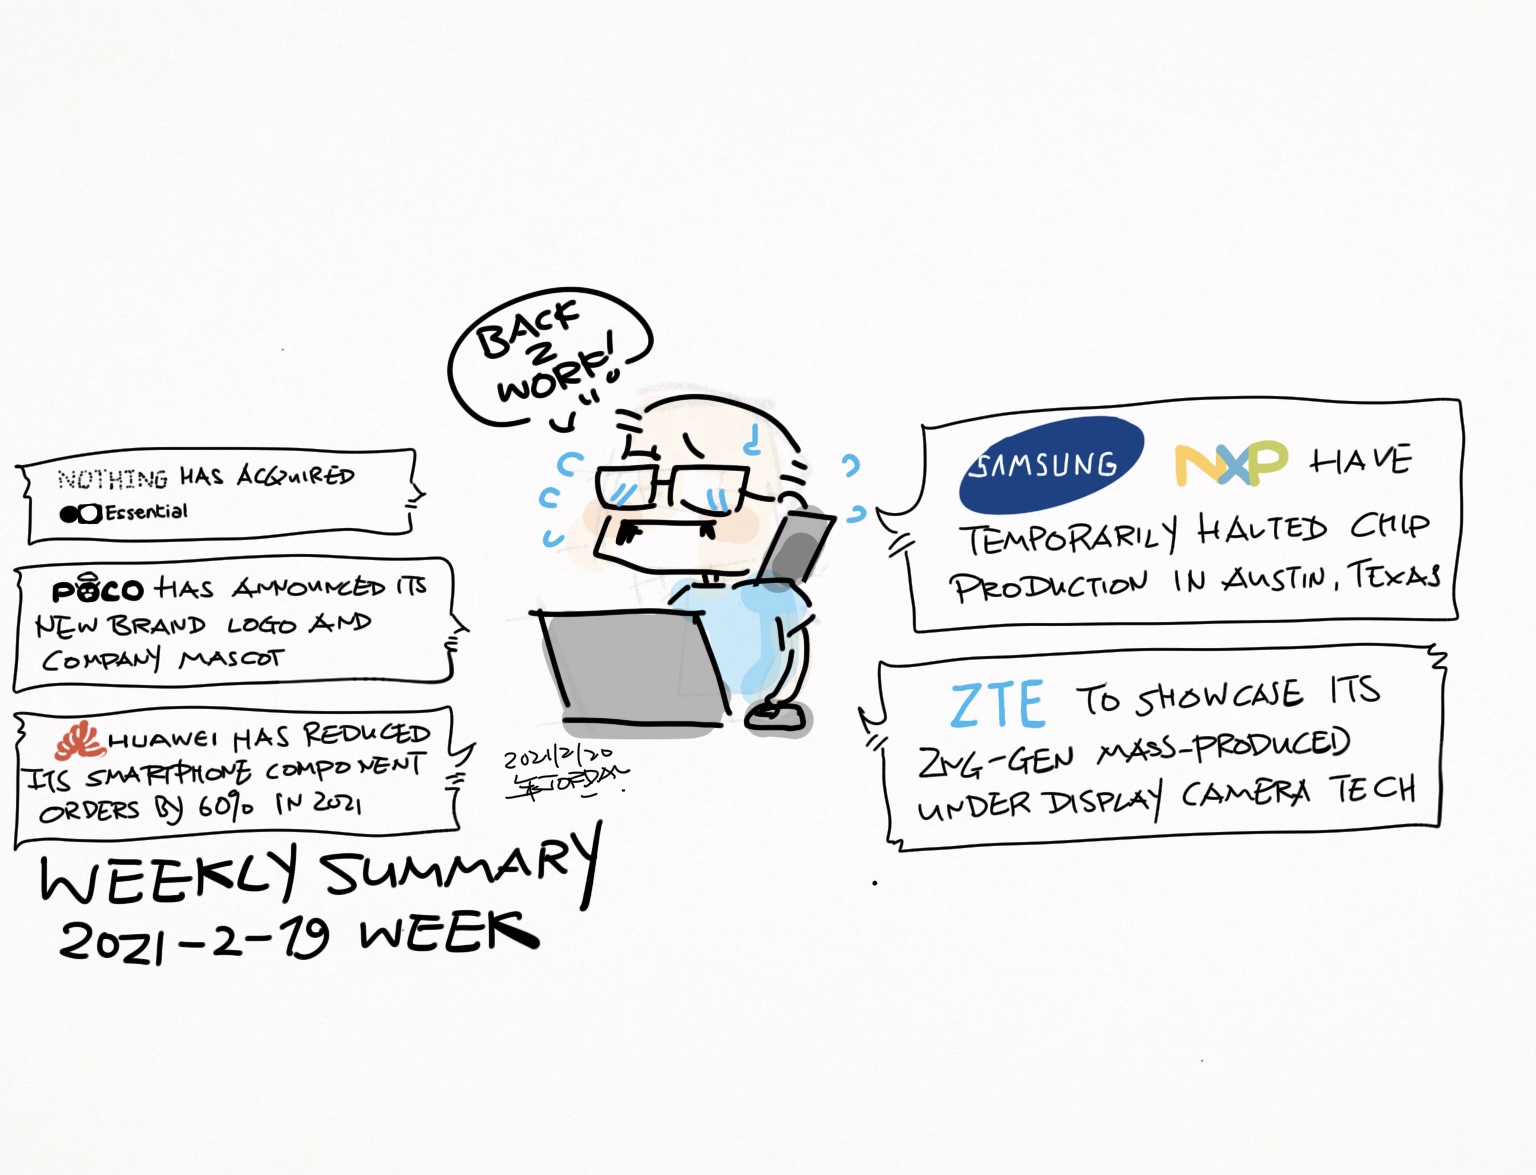 BACK
2
WORK!
NOTHING HAS ACQUIRED
Essential
POCO HAS ANNOUNCED ITS
NEW BRAND LOGO AND
COMPANY MASCOT
HUAWEI HAS REDUCED
ITS SMARTPHONE COMPONENT
ORDERS BY 60% IN 2021
SAMSUNG NXP HAVE
TEMPORARILY HALTED CHIP
PRODUCTION IN AUSTIN, TEXAS
ZTE TO SHOWCASE ITS
2NG-GEN MASS-PRODUCED
UNDER DISPLAY CAMERA TECH
2021/2/20
WEEKLY SUMMARY
2021-2-19 WEEK